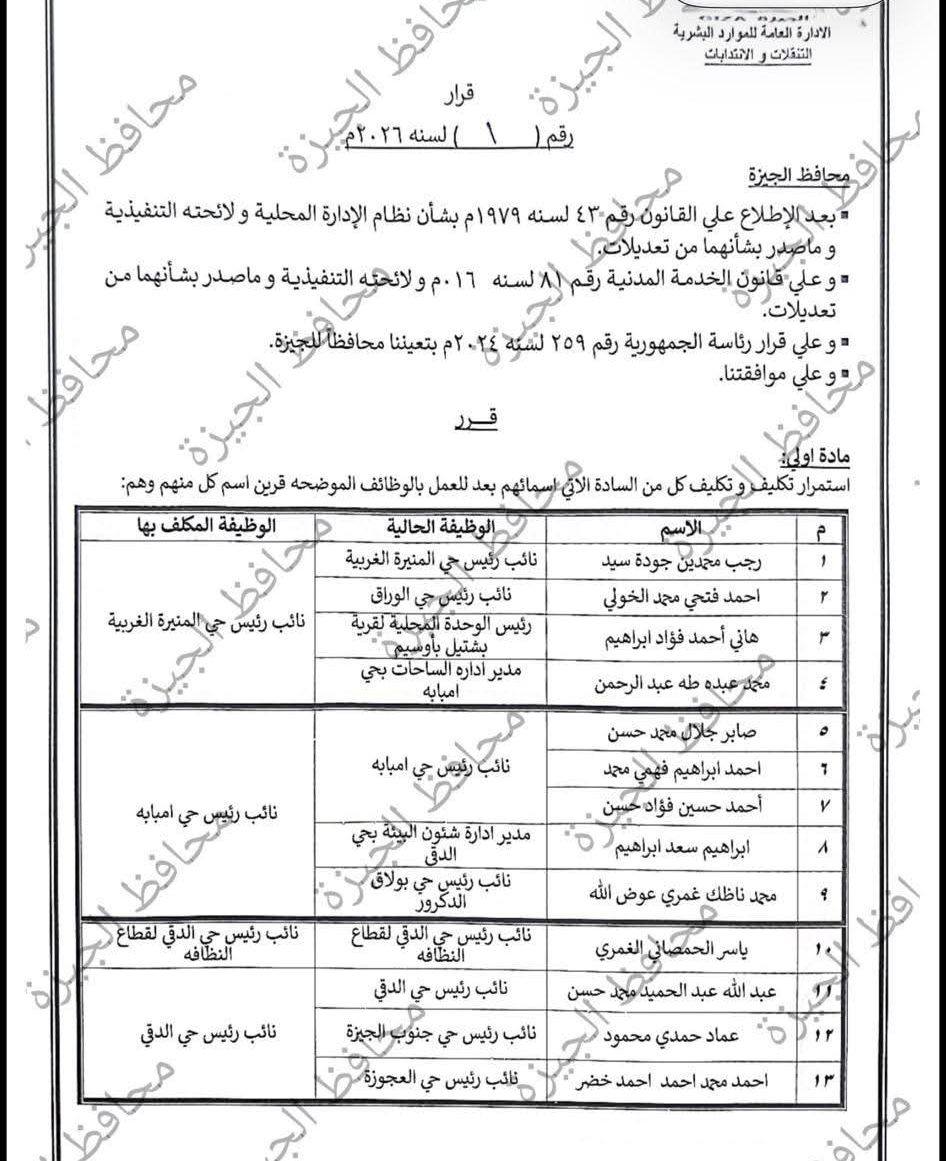 الادارة العامة للموارد البشرية
التنقلات و الانتدابات
قرار
رقم ( ١ ) لسنه ٢٠٢٦م
محافظ الجيزة
▪ بعد الإطلاع علي القانون رقم ٤٣ لسنه ١٩٧٩م بشأن نظام الإدارة المحلية و لائحته التنفيذية
و ماصدر بشأنهما من تعديلات.
▪ و علي قانون الخدمة المدنية رقم ٨١ لسنه ٠١٦م و لائحته التنفيذية و ماصدر بشأنهما من
تعديلات.
▪ و علي قرار رئاسة الجمهورية رقم ٢٥٩ لسنه ٢٠٢٤م بتعيننا محافظاً للجيزة.
▪ و علي موافقتنا.
قـــرر
مادة اولي:
استمرار تكليف و تكليف كل من السادة الاتي اسمائهم بعد للعمل بالوظائف الموضحه قرين اسم كل منهم وهم:
م الاسم الوظيفة الحالية الوظيفة المكلف بها
١ رجب محمدين جودة سيد نائب رئيس حي المنيرة الغربية
٢ احمد فتحي محمد الخولي نائب رئيس حي الوراق
٣ هاني أحمد فؤاد ابراهيم رئيس الوحدة المحلية لقرية نائب رئيس حي المنيرة الغربية
بشتيل بأوسيم
٤ محمد عبده طه عبد الرحمن مدير اداره الساحات بحي
امبابه
٥ صابر جلال محمد حسن
٦ احمد ابراهيم فهمي محمد نائب رئيس حي امبابه
٧ أحمد حسين فؤاد حسن نائب رئيس حي امبابه
٨ ابراهيم سعد ابراهيم مدير ادارة شئون البيئة بحي
الدقي
٩ محمد ناظك غمري عوض الله نائب رئيس حي بولاق
الدكرور
١٠ ياسر الحمصاني الغمري نائب رئيس حي الدقي لقطاع نائب رئيس حي الدقي لقطاع
النظافه النظافه
١١ عبد الله عبد الحميد محمد حسن نائب رئيس حي الدقي
١٢ عماد حمدي محمود نائب رئيس حي جنوب الجيزة نائب رئيس حي الدقي
١٣ احمد محمد احمد احمد خضر نائب رئيس حي العجوزة
محافظ الجيزة